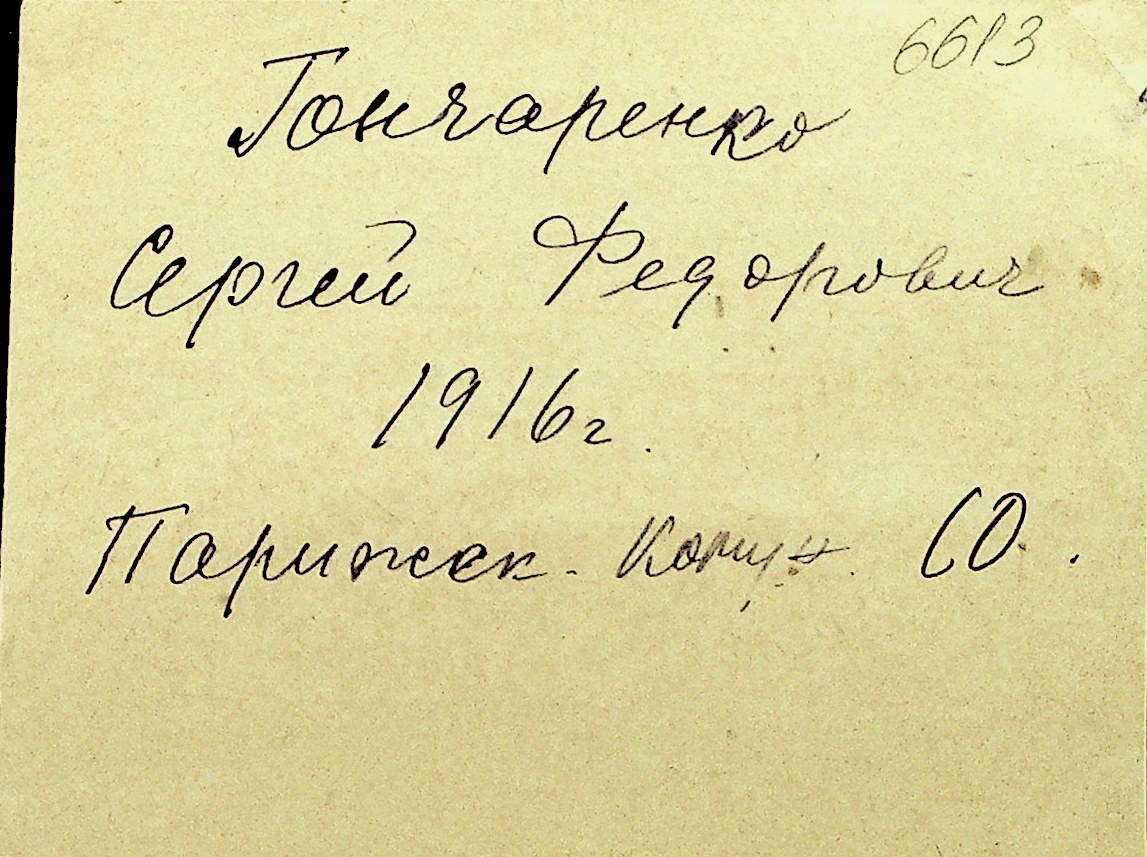 6613
Гончаренко
Сергей Федорович
1916г.
Парижск. Комун. 60.